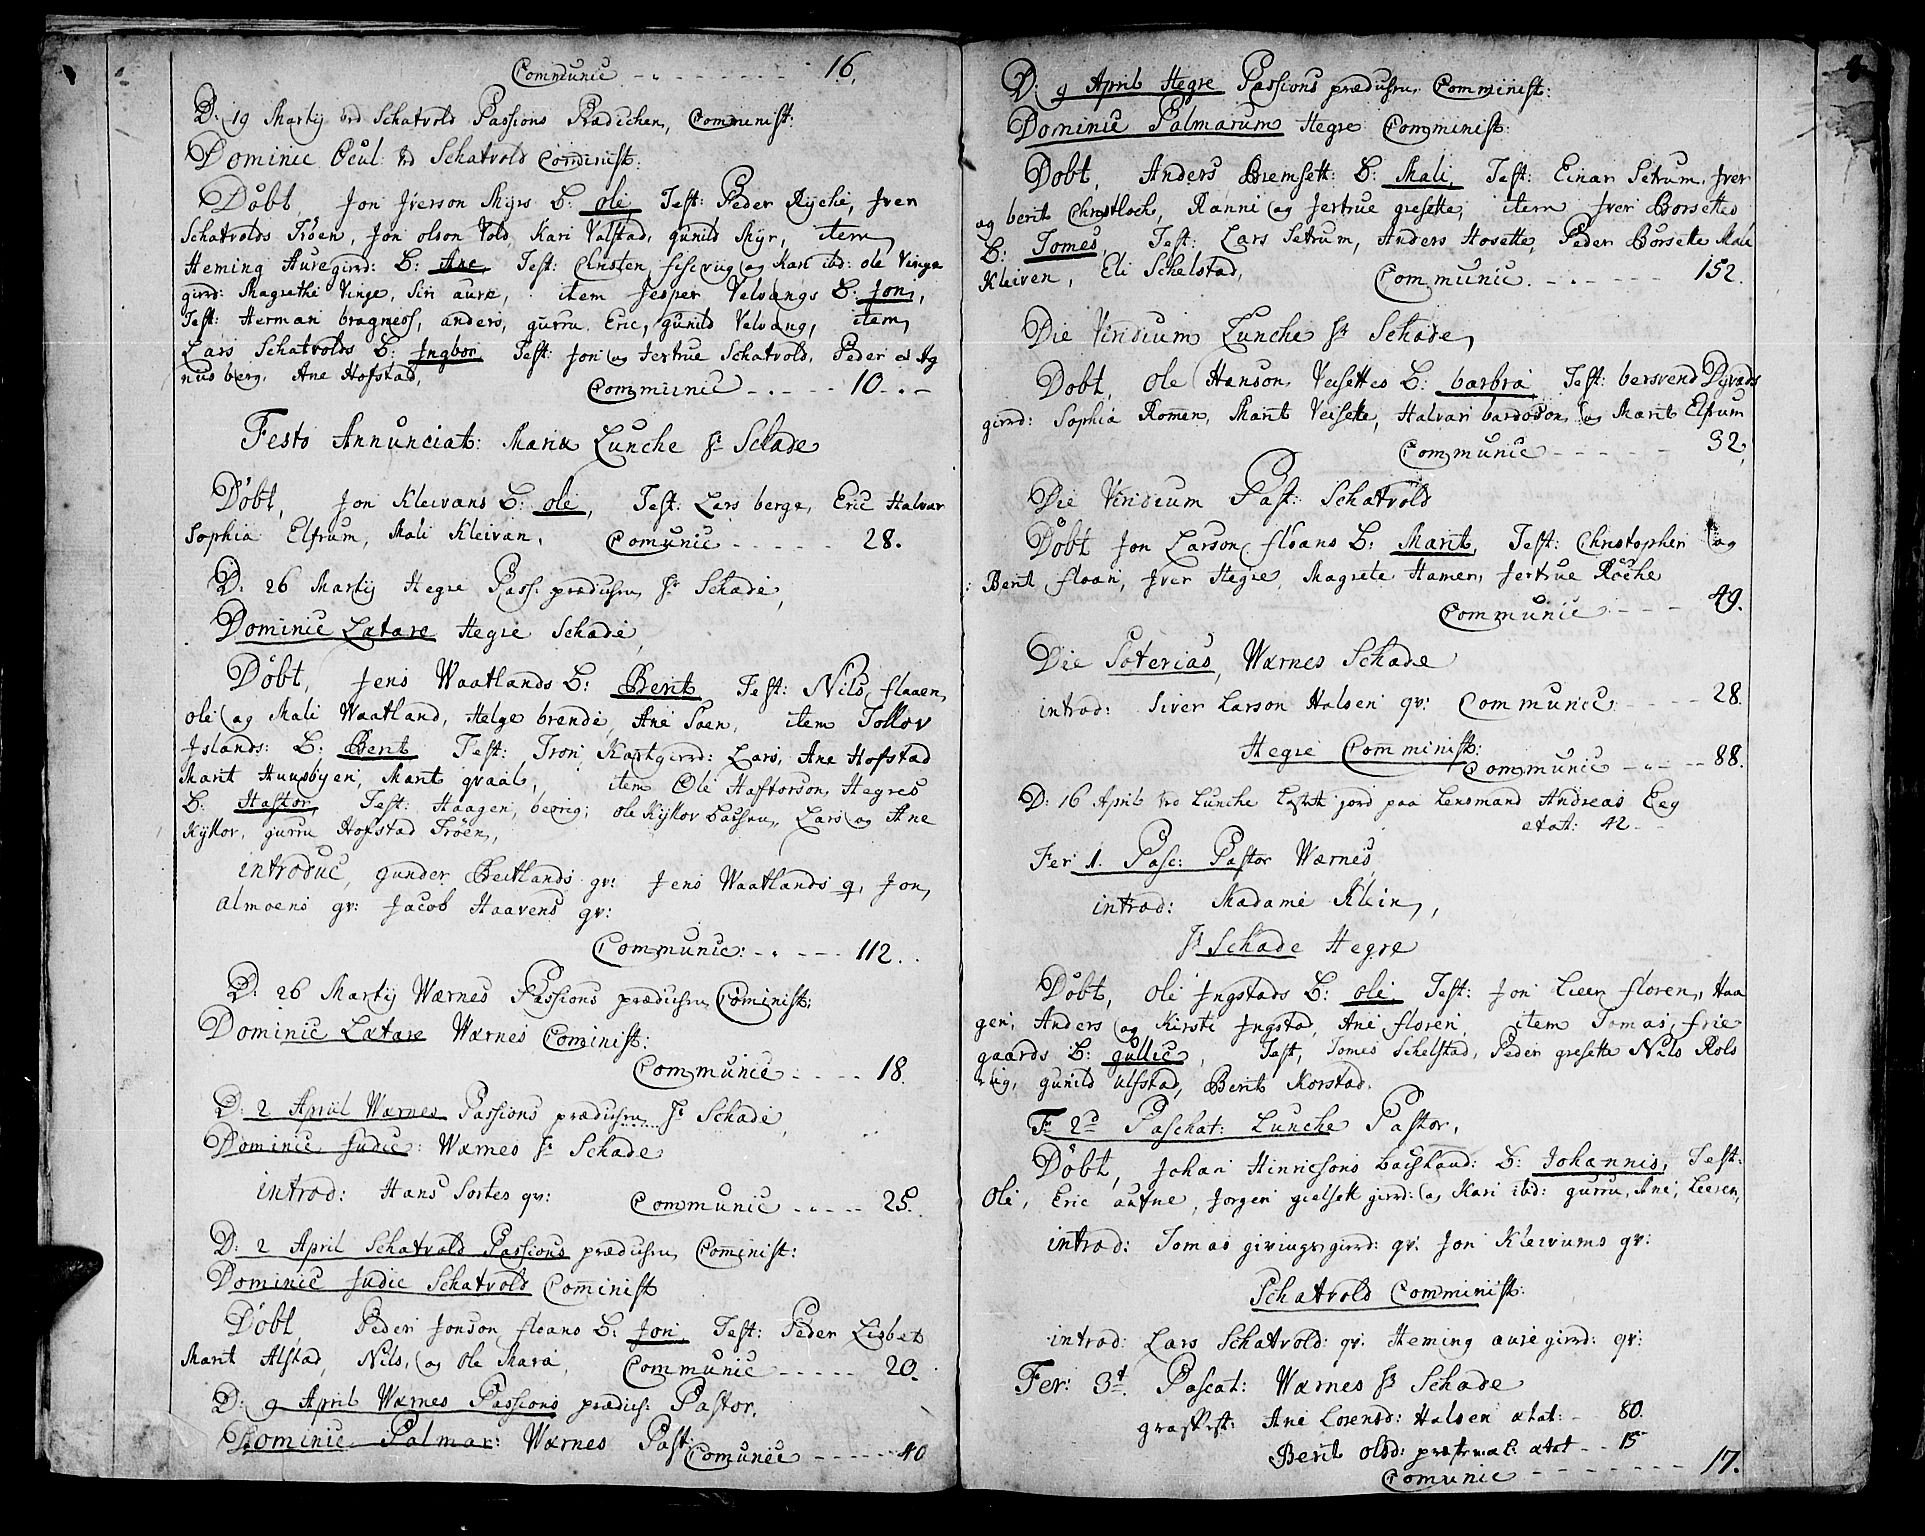 Communic - - - - - - - 16.
D: 19 Martij ved Schatvold Passions Prædichen, Comminist:
Dominic Ocul: ved Schatvold Comminist:
Döbt, Jon Jverson Skyrs B: ole Test: Peder Kyche, Jver
Schatvolds Tröen, Jon olson Vold, Kari Valstad, gunild Skyr, item
Heming Auregirrd: B: Ane, Test: Christen, og Kari ibd: ole Vinge
girrd: Magrethe Vinge, Siri aure, item Jesper Velvangs B: Jon,
Test: Herman bragneos, anders, gurru, Eric, gunild Velvang, item,
Lars Schatvolds B: Jngbor, Test: Jon og Jertrue Schatvold, Peder Ag
nus berg, Ane Hofstad,
Communic - . - - 10 - . -
Festo Annunciat: Mariæ Lunche Hr Schade
Döbt, Jon Kleivans B: ole, Test: Lars berge, Eric Halvar
Sophia Elfrum, Mali Kleivan, Comunic - - - - 28.
D: 26 Martij Hegre Pass: prædichen Hr Schade,
Dominic Lætare Hegre Schade,
Döbt, Jens Waatlands B: Berit Test: Nils flaaen,
ole og Mali Waatland, Helge brende, Ane Soen, item Tollov
Jslands: B: Berit Test: Tron, Kartgirrd: Lars, Ane Hofstad
Marit Huusbyen, Marit qvaal, item Ole Haftorson Hegres
B: Haftor, Test: Haagen, bevrig; ole Kylloy bachen, Lars og Ane
Kyllov, gurru Hofstad Tröen,
introduc, gunder Beitlands qv: Jens Waatlands q, Jon,
Almoens qv: Jacob Haavens qv:
Communic: - . - - - 112.
D: 26 Martij Wærnes Passions prædichen Cominist:
Dominic Lætare Wærnes Cominist:
Communic - - - - 18.
D: 2 April Wærnes Passions prædichen Hr Schade,
Dominic Judic: Wærnes Hr Schade
introd: Hans Sortes qv: Communic - - - - 25.
D: 2 April Schatvold Passions prædichen Cominist:
Dominic Judic Schatvold Cominist
Döbt, Peder Jonson floans B: Jon, Test: Peder Lisbet
Marit Alstad, Nils, og ole Mara, Communic - - - - - 20.
D: 9 April Wærnes Passions prædich: Pastor,
Dominic Palmar: Wærnes Past: Comunic - - - - - 40
D: 9 April Hegre Passions prædichen Comminist:
Dominic Palmarum Hegre Comminist:
Döbt, Anders Bremsett: B: Mali, Test: Einar Setrum, Jver
og berit Christloch, Ranni og Jertrue gresette, item Jver Borsettes
B: Tomes, Test: Lars Setrum, Anders Hosette, Peder Borsette Mali
Kleiven, Eli Schelstad, Communic - . - . - - - 152.
Die Viridium Lunche Hr Schade,
Dobt, Ole Hanson Veisettes B: barbra Test: bersvend Dyvads
girrd: Sophia Romen, Marit Veisette, Halvar bardoson, og Marit Elfrum
Communic - - - - - 32,
Die Viridium Past: Schatvold
Döbt Jon Larson floans B: Marit, Test: Christopher og
Berit floan, Jver Hegre, Magrete Hamer, Jertrue Röche
Communic - - - - 49.
Die Soterias, Wærnes Schade
introd: Siver Larson Halsen qv: Communic - - - - 28.
Hegre Comminist:
Communic - - - - - 88.
D: 16 April ved Lunche kast jord paa Lensmand Andreas Eeg
etat: 42 -
Fer: 1. Pasc: Pastor Wærnes,
introd: Madame Klein,
Hr Schade Hegre
Döbt, Ole Jngstads B: ole, Test: Jon Lieen floren, Haa
gen, Anders og Kirsti Jngstad, Ane floren, item Tomas, frie
gaards B: gullic, Test, Tomes Schelstad, Peder gresette Nils Rols
rüg, gunild ulfstad, Berit Korstad.
Fr 2d Paschat: Lunche Pastor,
Döbt, Johan Hinricsons bachland: B: Johannis, Test:
Ole, Eric autne, Jorgen gielsett girrd: og Kari ibd: gurru, Ane, Leeren,
introd: Tomas givingsgirrd: qv: Jon Kleivums qv:
Schatvold Comminist:
introd: Lars Schatvold: qv: Heming auregirrd: qv:
Fer: 3t. Pascat: Wærnes Hr Schade
graffest: Ane Lorensd: Halsen ætat: - 80.
Berit olsd: ætat - - 15
Comunic - - - - - - - - 17.